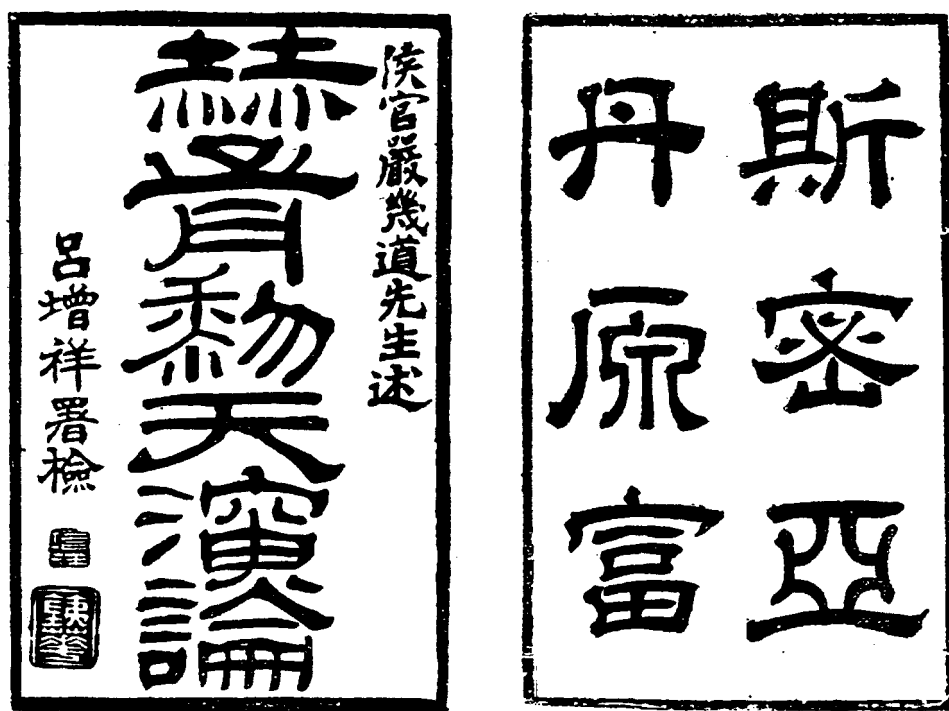 侯官嚴幾道先生述
赫胥黎天演論
呂增祥署檢
斯密亞
丹原富